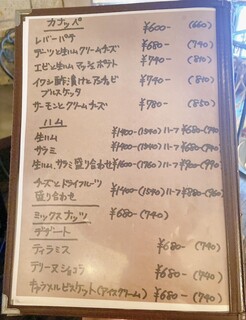 カナッペ
レバーパテ ¥600- (660)
デーツと生ハムクリームチーズ ¥680- (740)
エビと生ハムマッシュポテト ¥740- (810)
イワシ酢漬けとアンチョビ ¥780- (840)
ブルスケッタ
サーモンとクリームチーズ ¥780- (850)
ハム
生ハム ¥1400-(1540) ハーフ ¥680-(740)
サラミ ¥1400-(1540) ハーフ ¥680-(740)
生ハム、サラミ盛り合わせ ¥1600-(1760) ハーフ ¥900-(990)
チーズとドライフルーツ ¥1400-(1540) ハーフ ¥880-(960)
盛り合わせ
ミックスナッツ ¥680-(740)
デザート
ティラミス ¥680- (740)
テリーヌショコラ ¥680- (740)
キャラメルビスケット(アイスクリーム) ¥680- (740)